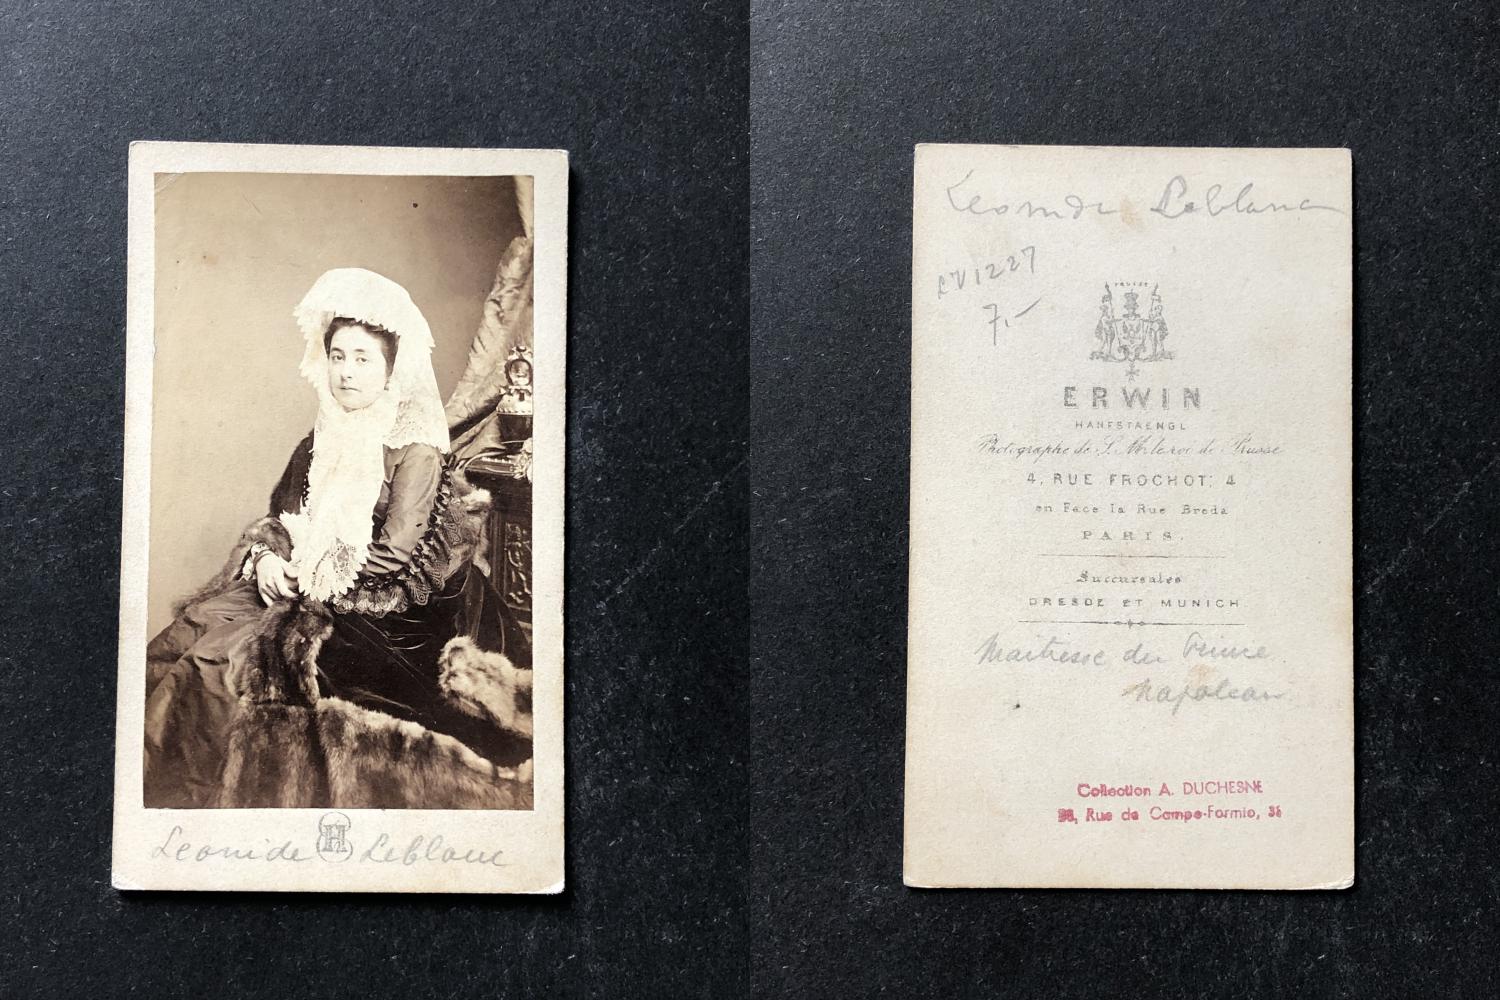 Leonide H Leblanc
Leonide Leblanc
1227
7.-
PRUSSE
ERWIN
HANFSTAENGL
Photographe de S. M. le roi de Prusse
4, RUE FROCHOT, 4
en Face la Rue Breda
PARIS.
Succursales
DRESDE ET MUNICH
Maitresse du Prince
Napoleon
Collection A. DUCHESNE
Rue de Campo-Formio,